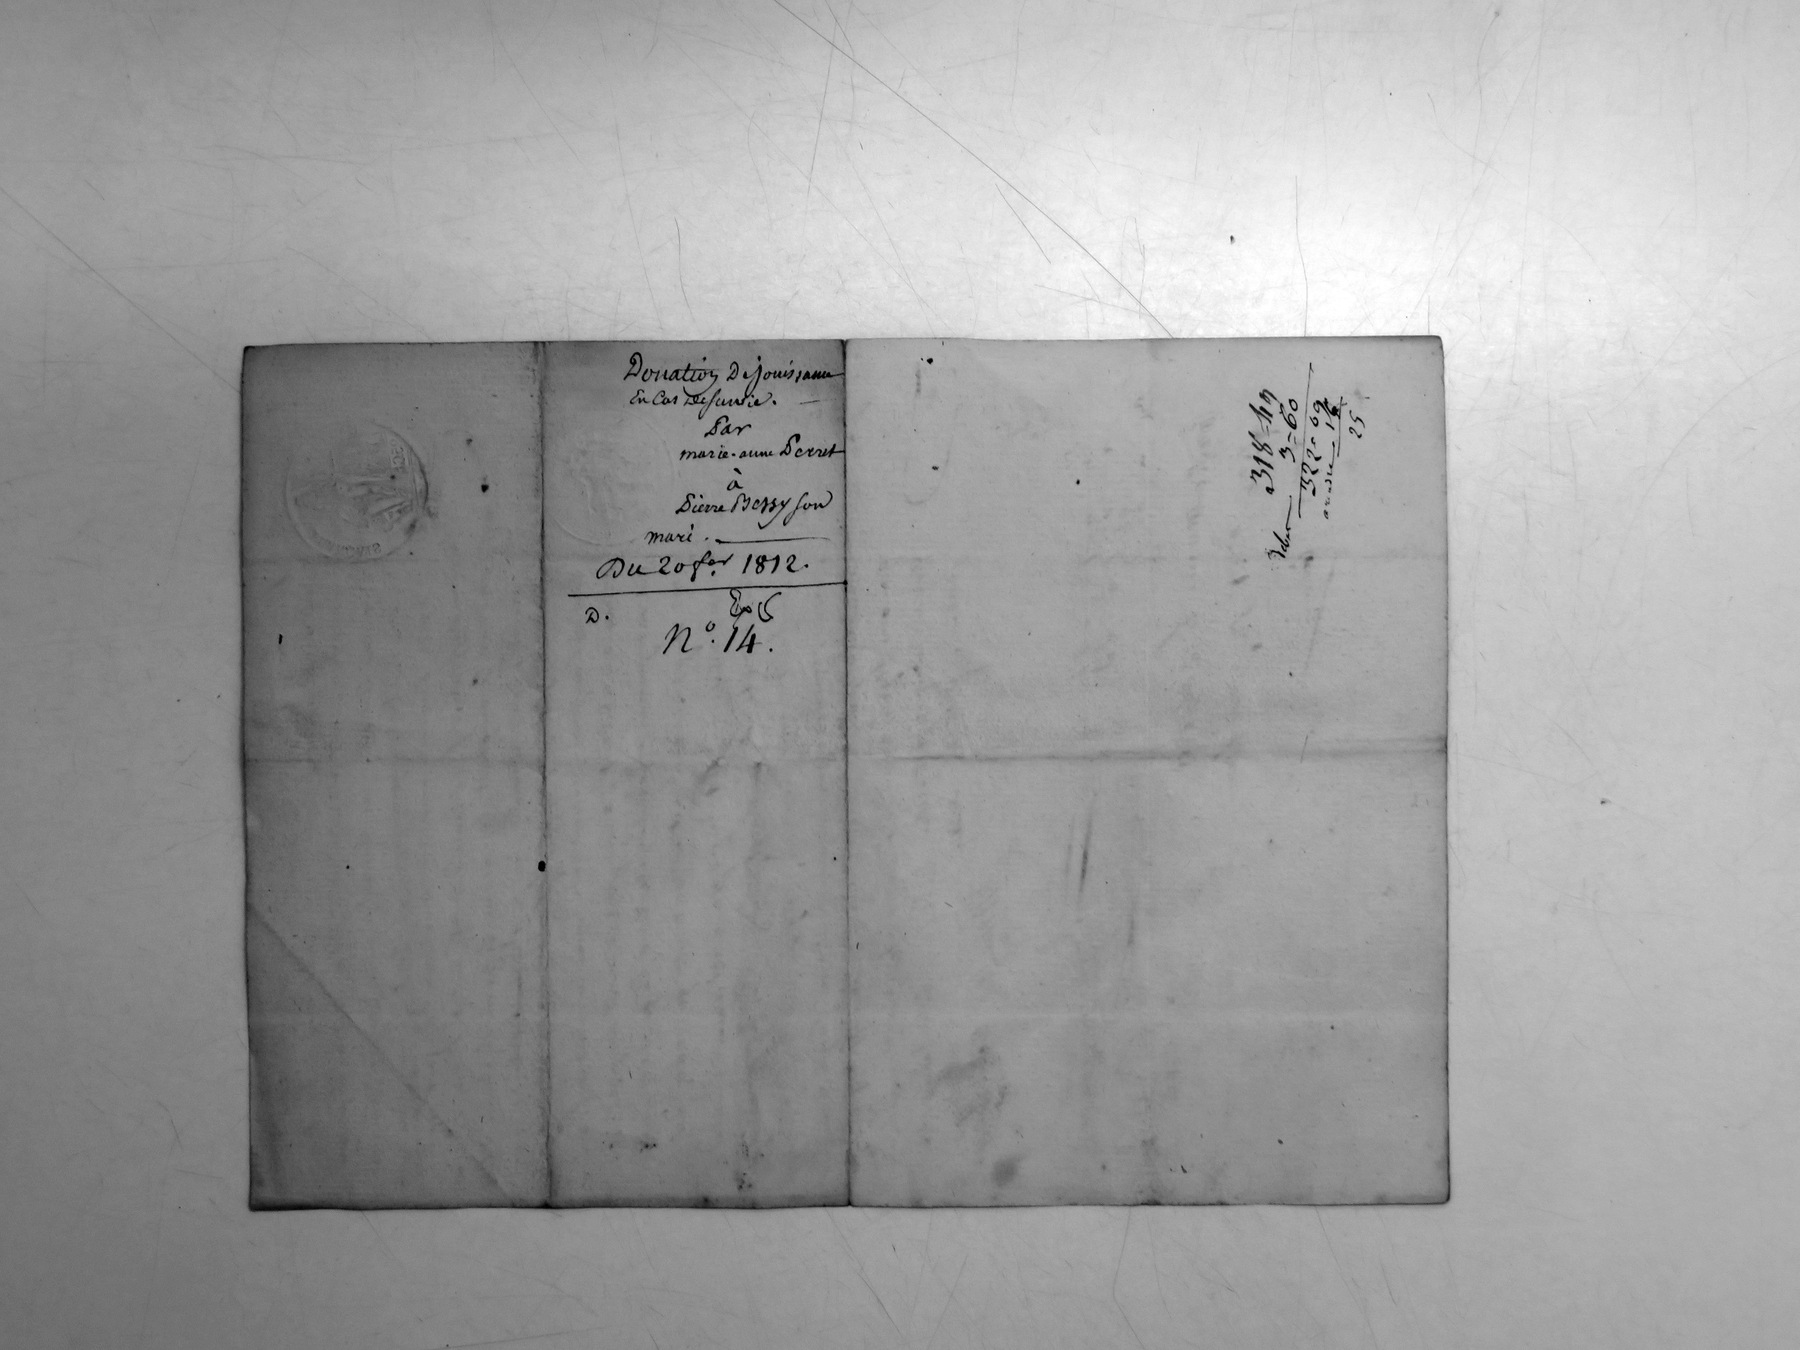 Donation De jouissance
En Cas De survie. —
Par
marie-anne Perret
à
Pierre Bessy son
mari. —
Du 20 fer 1812.
D. Exp
No. 14.
318=49
3=60
322=09
16
25